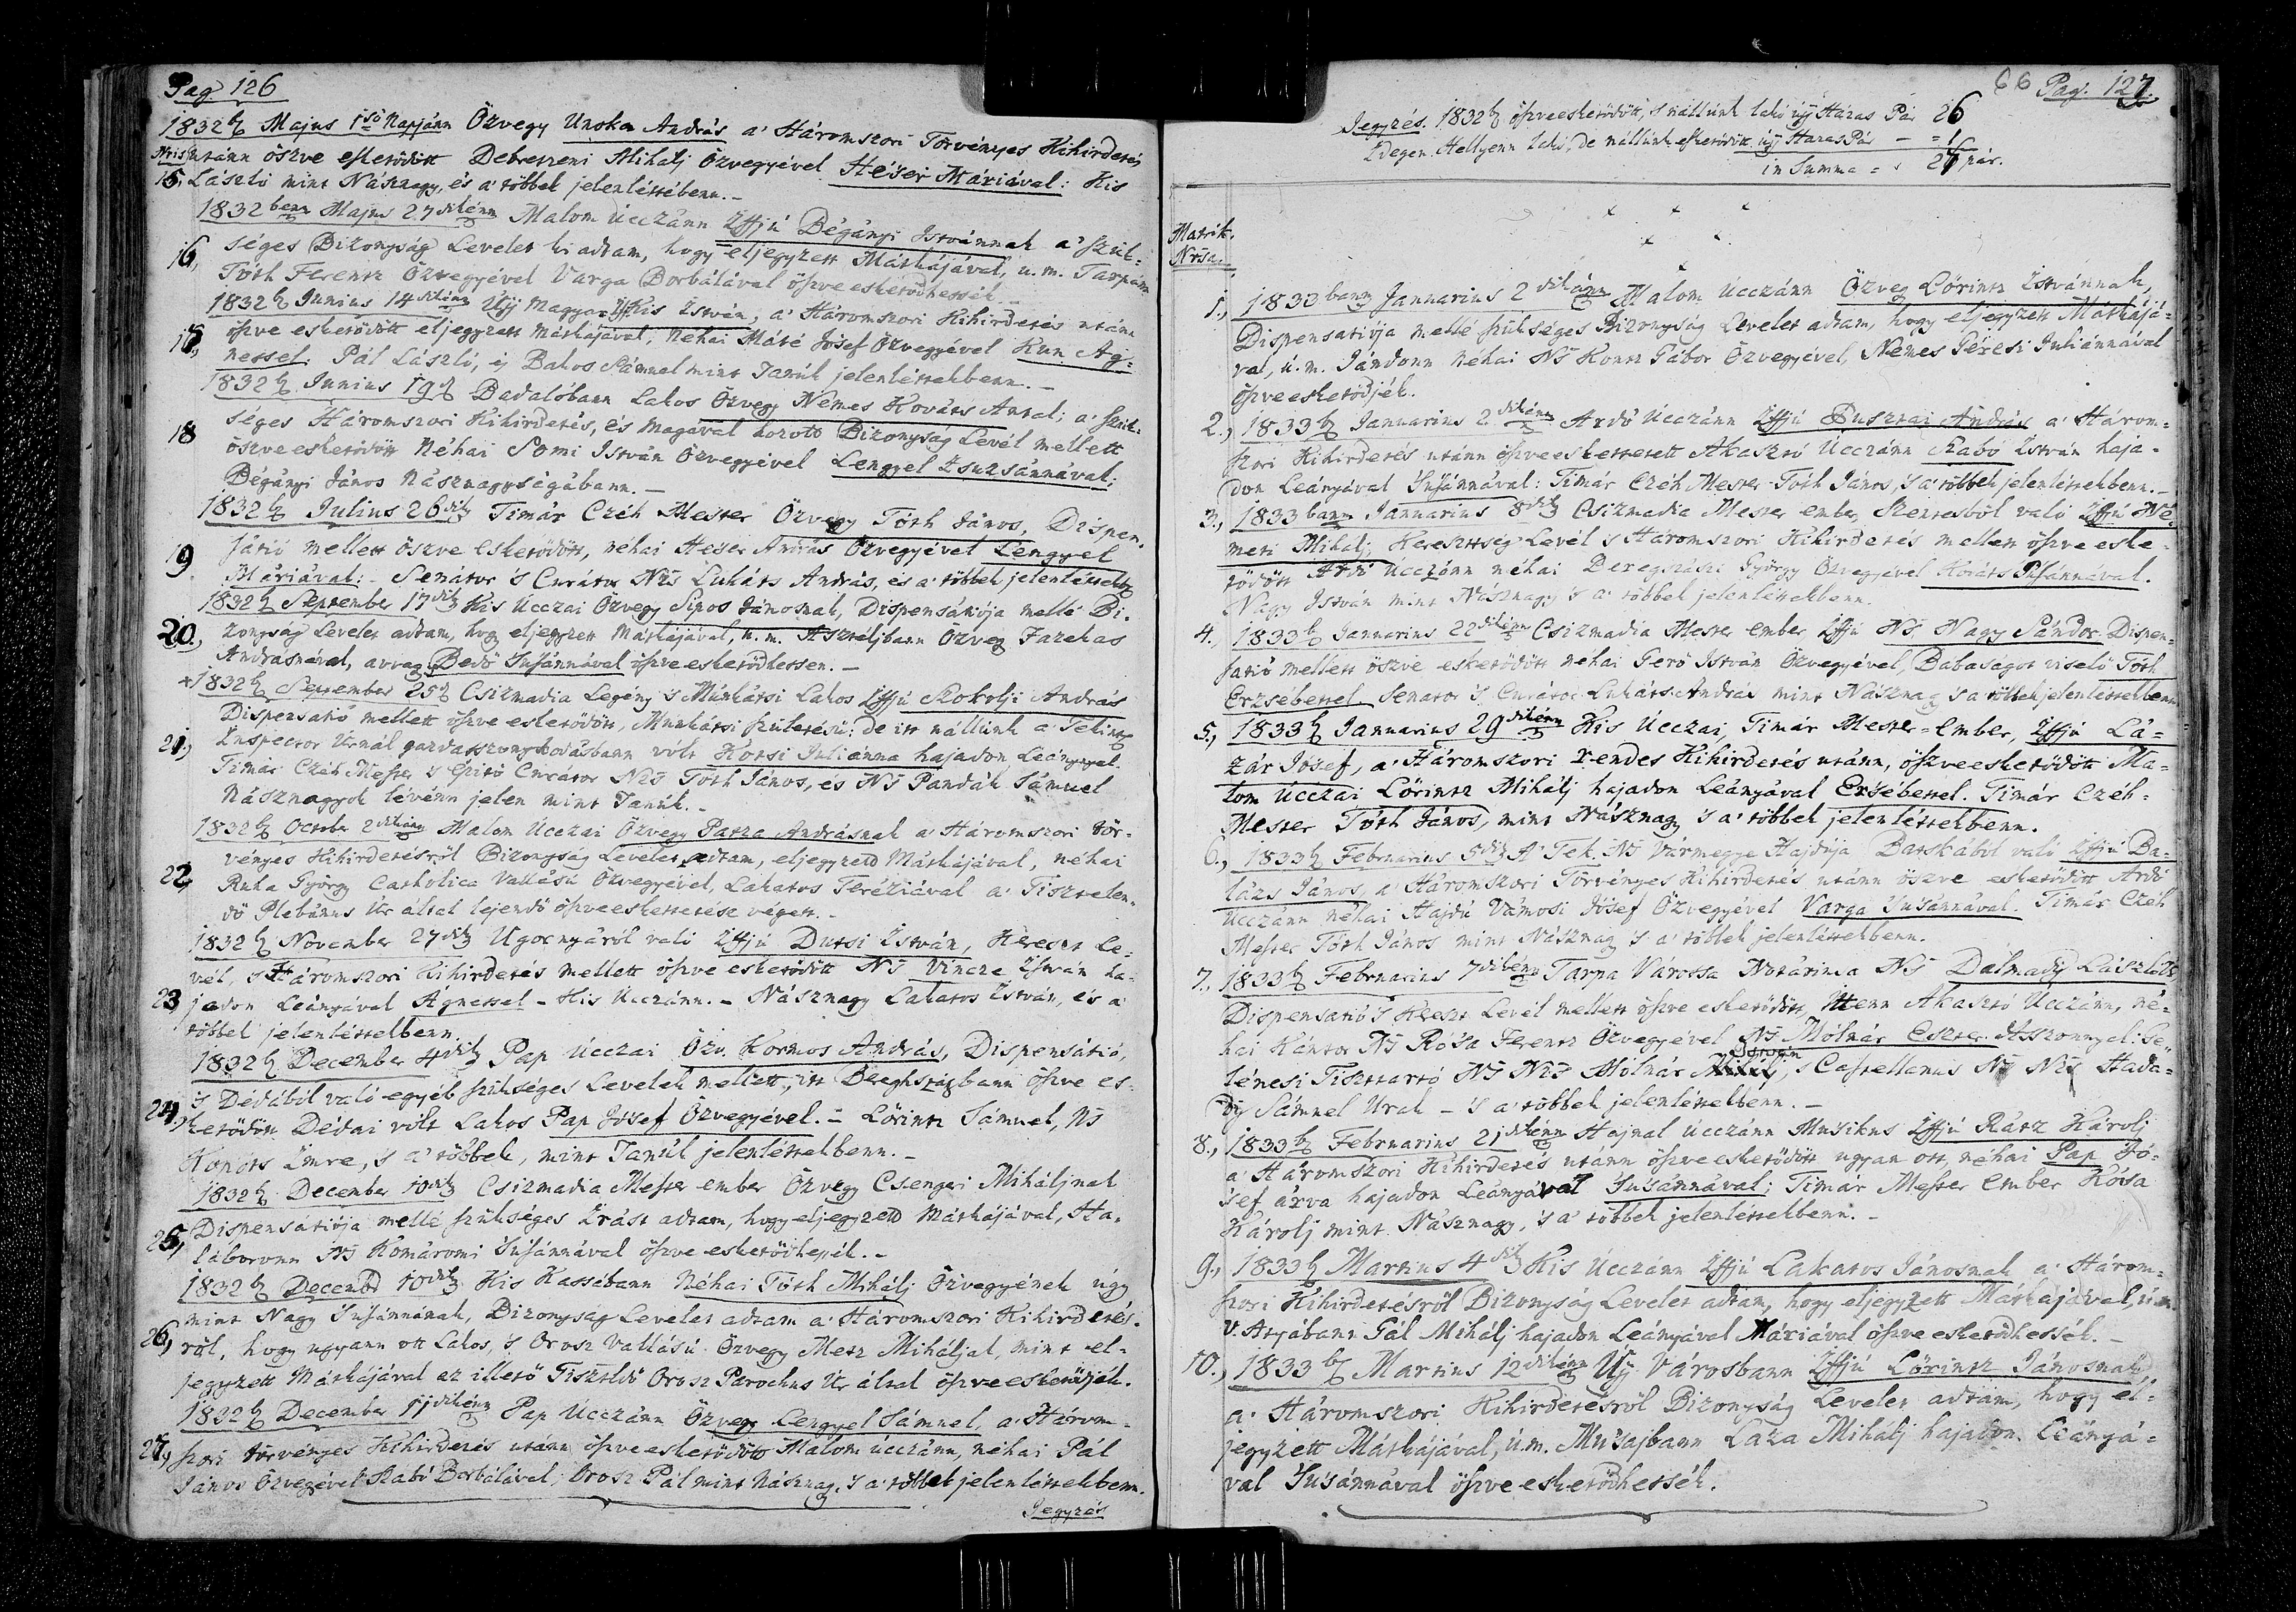 Pag 126
1832b Majus 1ső Napjánn Özvegy Unoka András a' Háromszori Törvényes Kihirdetés
Nris utánn öszve esketődött Debretzeni Mihálj Özvegyével Héser Máriával: Kis
15, László mint Násznagy, és a' többek jelenlétébenn. -
1832benn Majus 27dikénn Malom Ucczánn Iffjú Bégányi Istvánnak a' szük-
16, séges Bizonyság Levelet ki adtam, hogy eljegyzett Mátkájával, u.m. Tarpánn
Tóth Ferentz Özvegyével Varga Borbálával öszve esketődhessék. -
1832b Junius 14dikénn Újj Magyar Iffj Kis István, a' Háromszori Kihirdetés utánn
17, öszve esketődött eljegyzett Mátkájával, Néhai Máté Jósef Özvegyével Kun Ág-
nessel. Pál László, és Bakos Sámuel mint Tanúk jelenléttekbenn. -
1832b Junius 19d Badalóbann Lakos Özvegy Nemes Kováts Antal; a' szük-
18 séges Háromszori Kihirdetés, és Magával hozott Bizonyság Levél mellett
öszve esketődött Néhai Somi István Özvegyével Lengyel Zsuzsánnával:
Bégányi János Násznagyságábann. -
1832b Julius 26dik Timár Czéh Mester Özvegy Tóth János, Dispen-
19 sátió mellett öszve esketődött, néhai Héser András Özvegyével Lengyel
Máriával: - Senátor 's Curátor Ns Lukáts András, és a' többek jelenléttekb
1832b September 17dik Kis Ucczai Özvegy Sipos Jánosnak, Dispensátiója mellé Bi-
20., zonyság Levelet adtam, hogy eljegyzett Mátkájával, u.m. Asztéljbann Özveg Fazekas
Andrásnéval, avvag Bedő Susánnával öszve esketődhessen. -
x 1832b September 25d Csizmadia Legény 's Munkátsi Lakos Iffjú Szokolji András
Dispensatió mellett öszve esketődött, Munkátsi születésű: de itt nállunk a' Telings
21., Inspector Urnál gazdasszonykodásbann volt Kotsi Juliánna hajadon Leánnyal.
Timár Czéh Mester 's épitő Curátor NS Tóth János, és NS Pandák Sámuel
Násznagyok lévénn jelen mint Tanúk. -
1832b Octobr 2dikánn Malom Ucczai Özvegy Patza Andrásnak a' Háromszori tör-
vényes Kihirdetésről Bizonyság Levelet adtam, eljegyzett Mátkájával, néhai
22, Ruha György Catholica Vallású Özvegyével, Lakatos Teréziával a' Tisztelen-
dő Plebánus Ur által lejendő öszveeskettetése végett. -
1832b November 27dik Ugornyáról való Iffjú Dutsi István, Kereszt Le-
vél, 's Háromszori Kihirdetés mellett öszve esketődött NS Vincze István ha-
23, jadon Leányával Agnessel - Kis Ucczánn. - Násznagy Lakatos István, és a'
többek jelenléttekbenn.
1832b December 4dik Pap Ucczai Özv. Kormos András, Dispensátió,
's Dédából való egyéb szükséges Levelek mellett, itt Bereghszászbann öszve es-
24., ketődött Dédai volt Lakos Pap Jósef Özvegyével. - Lőrintz Sámuel, NS
Kováts Imre, 's a' többek, mint Tanúk jelenléttekbenn. -
1832b December 10dik Csizmadia Mester ember Özvegy Csengeri Miháljnak
Dispensátiója mellé szükséges Irást adtam, hogy eljegyzett Mátkájával, Ha-
25, láboronn NS Komáromi Susánnával öszve esketődhessék. -
1832b Decembr 10dik Kis Kassábann Néhai Tóth Mihálj Özvegyének úgy
mint Nagy Susánnának, Bizonyság Levelet adtam a' Háromszori Kihirdetés-
26, ről, hogy ugyann ott Lakos, 's Orosz Vallású Özvegy Mesz Miháljal, mint el-
jegyzett Mátkájával az illető Tisztldő Orosz Parochus Ur által öszve esketődjék.
1832b December 11dikénn Pap Ucczánn Özvegy Lengyel Sámuel, a' Három-
27., szori törvényes Kihirdetés utánn öszve esketődött Malom ucczánn, néhai Pál
János Özvegyével Szabó Borbálával; Orosz Pál mint Násznag. 's a' többek jelenléttekbenn.
Jegyzés
66 Pag. 127.
Jegyzés. 1832b öszveesketődött, 's nállunk lakó újj Házas Pár 26
Idegen Hellyenn Lakó, de nállunk esketődött újj Házas Pár - = 1
in Summa = 27 pár.
Matrik.
Nrsa.
1., 1833bann Januarius 2dikánn Malom Ucczánn Özveg Lőrintz Istvánnak,
Dispensatiója mellé szükséges Bizonyság Levelet adtam, hogy eljegyzett Mátkájá-
val, ú.m. Jándonn néhai NS Kontz Gábor Özvegyével, Nemes Géresi Juliánnával
öszveesketődjék.
2., 1833b Januarius 2dikánn Ardó Ucczánn Iffjú Pusztai András a' Három-
szori Kihirdetés utánn öszveeskettetett Akasztó Ucczánn Szabó István haja-
don Leányával Susánnával: Timár Czéh Mester Tóth János, 's a' többek jelenléttekbenn. -
3., 1833bann Januarius 8dik Csizmadia Mester ember, Szentesből való Iffjú Né-
meti Mihálj; Keresztség Levél 's Háromszori Kihirdetés mellett öszve eske-
tődött Ardó Ucczánn néhai Deregszászi György Özvegyével Kováts Susánnával.
Nagy István mint Násznagy 's a' többek jelenléttekbenn.
4., 1833b Januarius 22dikénn Csizmadia Mester ember Iffjú NS Nagy Sándor Dispen-
satió mellett öszve esketődött néhai Gerő István Özvegyével, Babaságot viselő Tóth
Erzsébettel Senator 's Curátor Lukáts András mint Násznag 's a' többek jelenléttekbenn
5., 1833b Januarius 29dikénn Kis Ucczai, Timár Mester-ember, Iffjú Lá-
zár Jósef, a' Háromszori rendes Kihirdetés utánn, öszveesketődött Ma-
lom Ucczai Lőrintz Mihálj hajadon Leányával Ersébettel. Timár Czéh-
Mester Tóth János, mint Násznagy 's a' többek jelenléttekbenn.
6., 1833b Februarius 5dik A' Tek. NS Vármegye Hajdúja Batskából való Iffjú Ba-
lázs János, a' Háromszori Törvényes Kihirdetés utánn öszve esketődött Ardó
Ucczánn néhai Hajdú Vámosi Jósef Özvegyével Varga Susánnával. Timár Czéh
Mester Tóth János mint Násznag 's a' többek jelenléttekbenn.
7., 1833b Februarius 7dikénn Tarpa Várossa Notáriusa NS Dalmady László,
Dispensatió 's Kereszt Levél mellett öszve esketődött Ittenn Akasztó Ucczánn, né-
hai Kántor NS Rósa Ferentz Özvegyével NS Mólnár Eszter Asszonnyal: Be-
lénesi Tiszttartó NS NS Mólnár Mihálj, 's Castellanus NS NS Hada-
dy Sámuel Urak - 's a' többek jelenléttekbenn. -
8., 1833b Februarius 21dikénn Hajnal Ucczánn Musikus Iffjú Rátz Károlj
a' Háromszori Kihirdetés utánn öszveesketődött ugyan ott, néhai Pap Jó-
sef árva hajadon Leányával Susánnával; Timár Mester Ember Kósa
Károlj mint Násznagy, 's a' többek jelenléttekbenn. -
9., 1833b Martius 4dik Kis Ucczánn Iffjú Lakatos Jánosnak a' Három-
szori Kihirdetésről Bizonyság Levelet adtam, hogy eljegyzett Mátkájával, u.m.
V. Atyábann Gál Mihálj hajadon Leányával Máriával öszve esketődhessék. -
10., 1833b Martius 12dikénn Új Városbann Iffjú Lőrintz Jánosnak
a' Háromszori Kihirdetésről Bizonyság Levelet adtam, hogy el-
jegyzett Mátkájával, ú.m. Musajbann Laza Mihálj hajadon Leányá-
val Susánnával öszve esketődhessék.